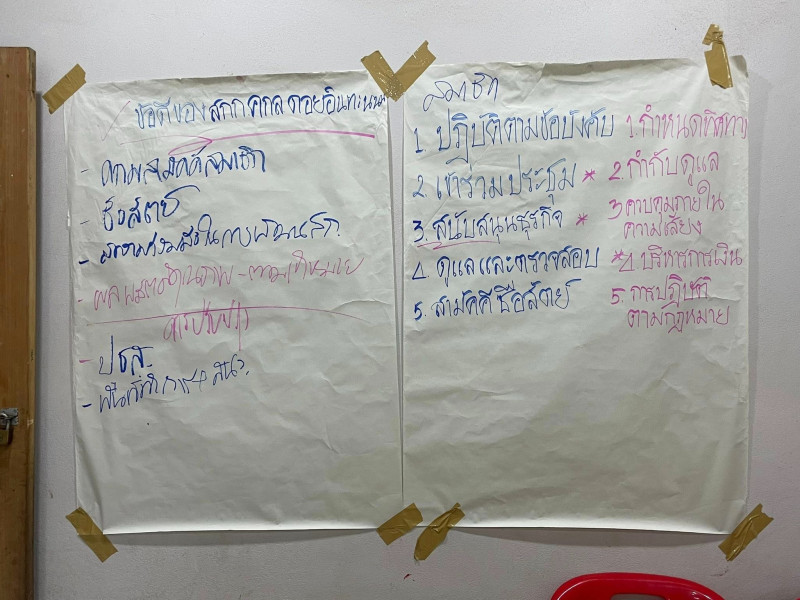 ข้อดีของสกก คกล ดอยอินทนนท์
- ความสามัคคีสมาชิก
- ซื่อสัตย์
- ในการพัฒนาสก.
- ผลผลิต
- ปธส.
สมาชิก
1. ปฏิบัติตามข้อบังคับ
2. เข้าร่วมประชุม *
3. สนับสนุนธุรกิจ *
4 ดูแลและตรวจสอบ
5. สามัคคี ซื่อสัตย์
1. กำหนดทิศทาง
2. กำกับดูแล
3 ควบคุมภายใน
ความเสี่ยง
*4 บริหารการเงิน
5. การปฏิบัติ
ตามกฎหมาย